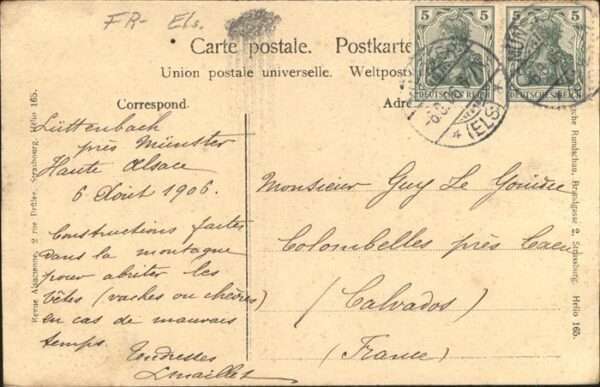 FR- Els.
Carte postale. Postkarte
Union postale universelle. Weltpost
5 5
5 5
DEUTSCHES REICH
DEUTSCHES REICH
MÜN
(ELS)
Correspond.
Adre
Lüttenbach
près Münster
Haute Alsace
6 Août 1906.
Constructions faites
dans la montagne
pour abriter les
bêtes (vaches ou chèvres)
en cas de mauvais
temps.
Tendresses
Monsieur Guy Le
Colombelles près Caen
(Calvados)
(France)
Revue Alsacienne. 2 rue Brûlée. Strasbourg. Hélio 165.
sche Rundschau, Brandgasse 2, Strassburg. Helio 165.